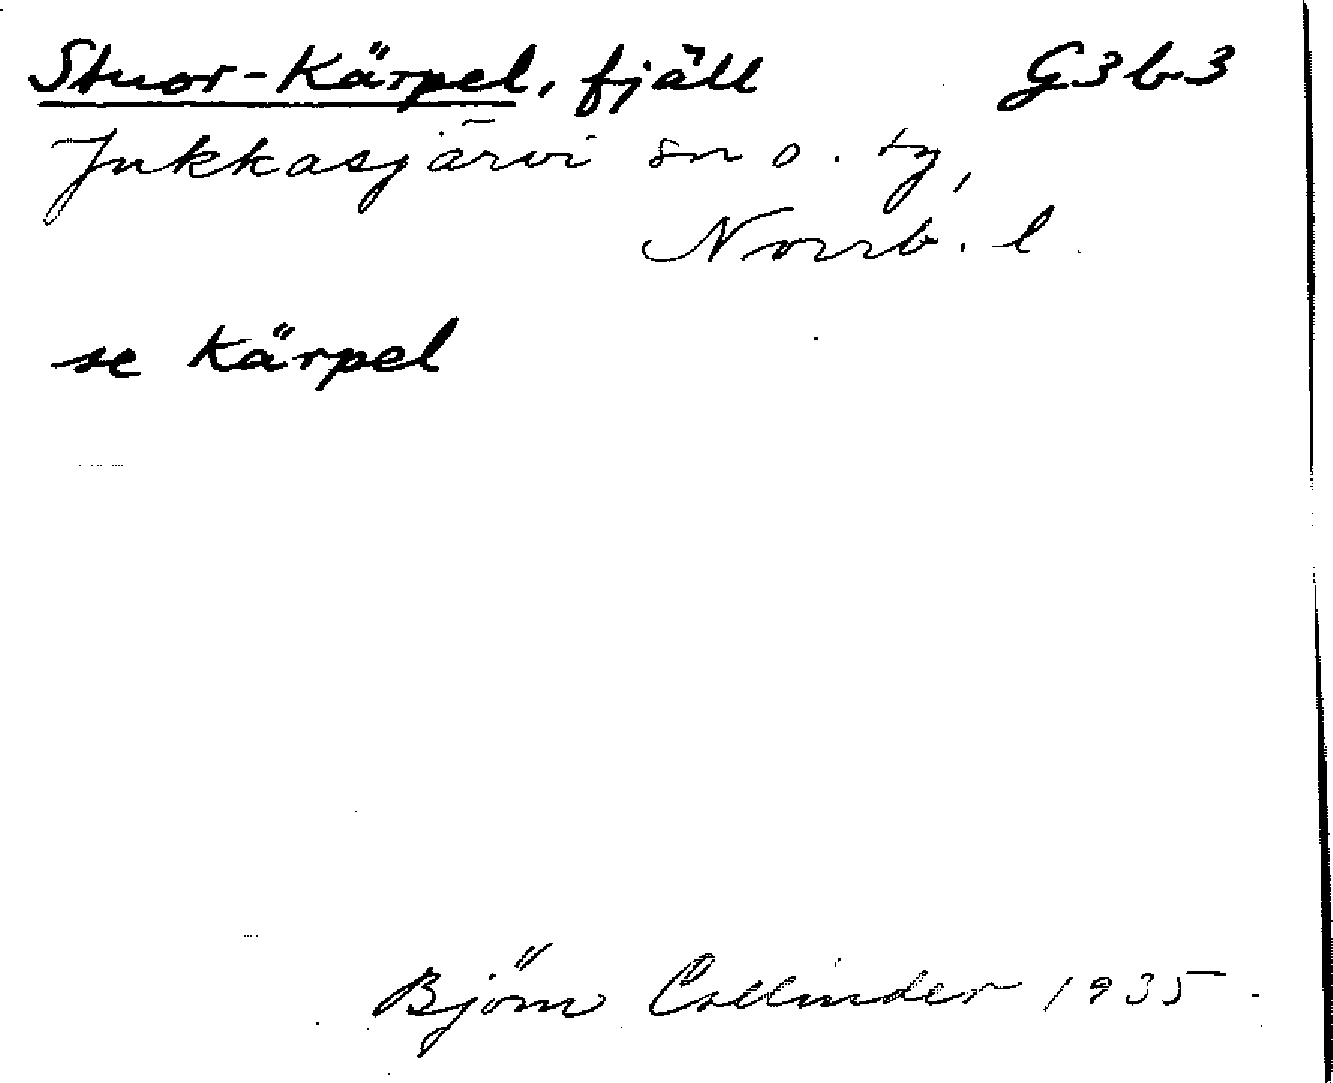 Stuor-Kärpel, fjäll G3b3
Jukkasjärvi sn o. tg,
Norrb. l.
se Kärpel
Björn Collinder 1935